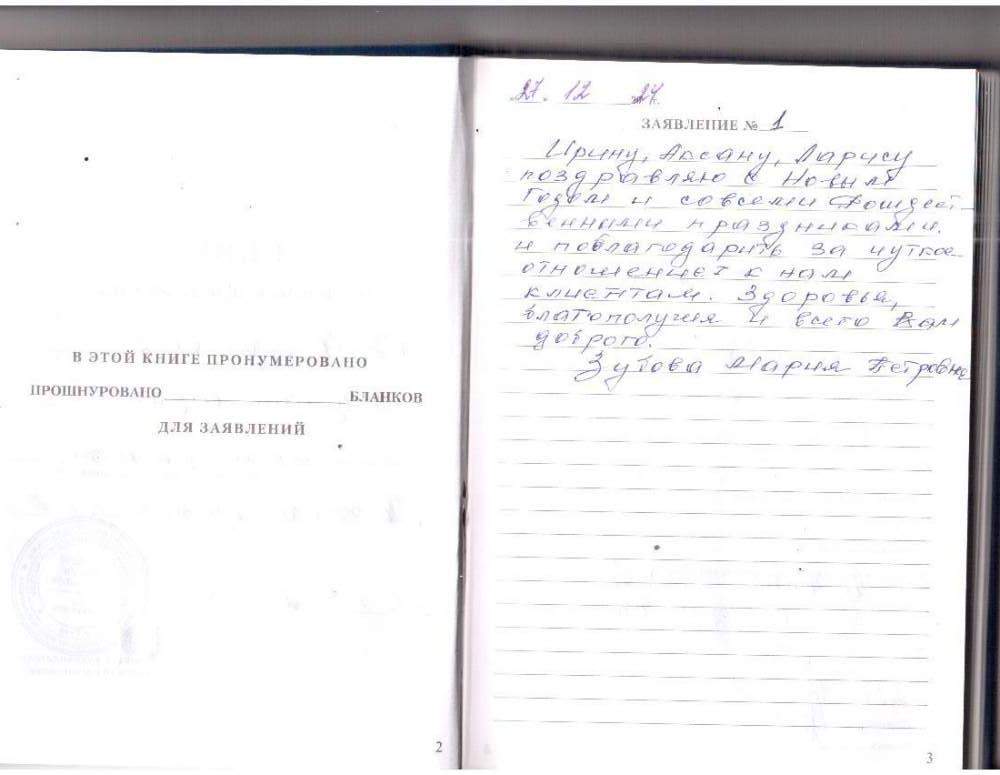 В ЭТОЙ КНИГЕ ПРОНУМЕРОВАНО
ПРОШНУРОВАНО БЛАНКОВ
ДЛЯ ЗАЯВЛЕНИЙ
2
27. 12 24.
ЗАЯВЛЕНИЕ № 1
Ирину, Аксану, Ларису
поздравляю с Новым
Годом и совсеми Рождест
венными праздниками.
и поблагодарить за чуткое
отношение к нам
клиентам. Здоровья,
благополучия и всего Вам
доброго.
Зубова Мария Петровна
3